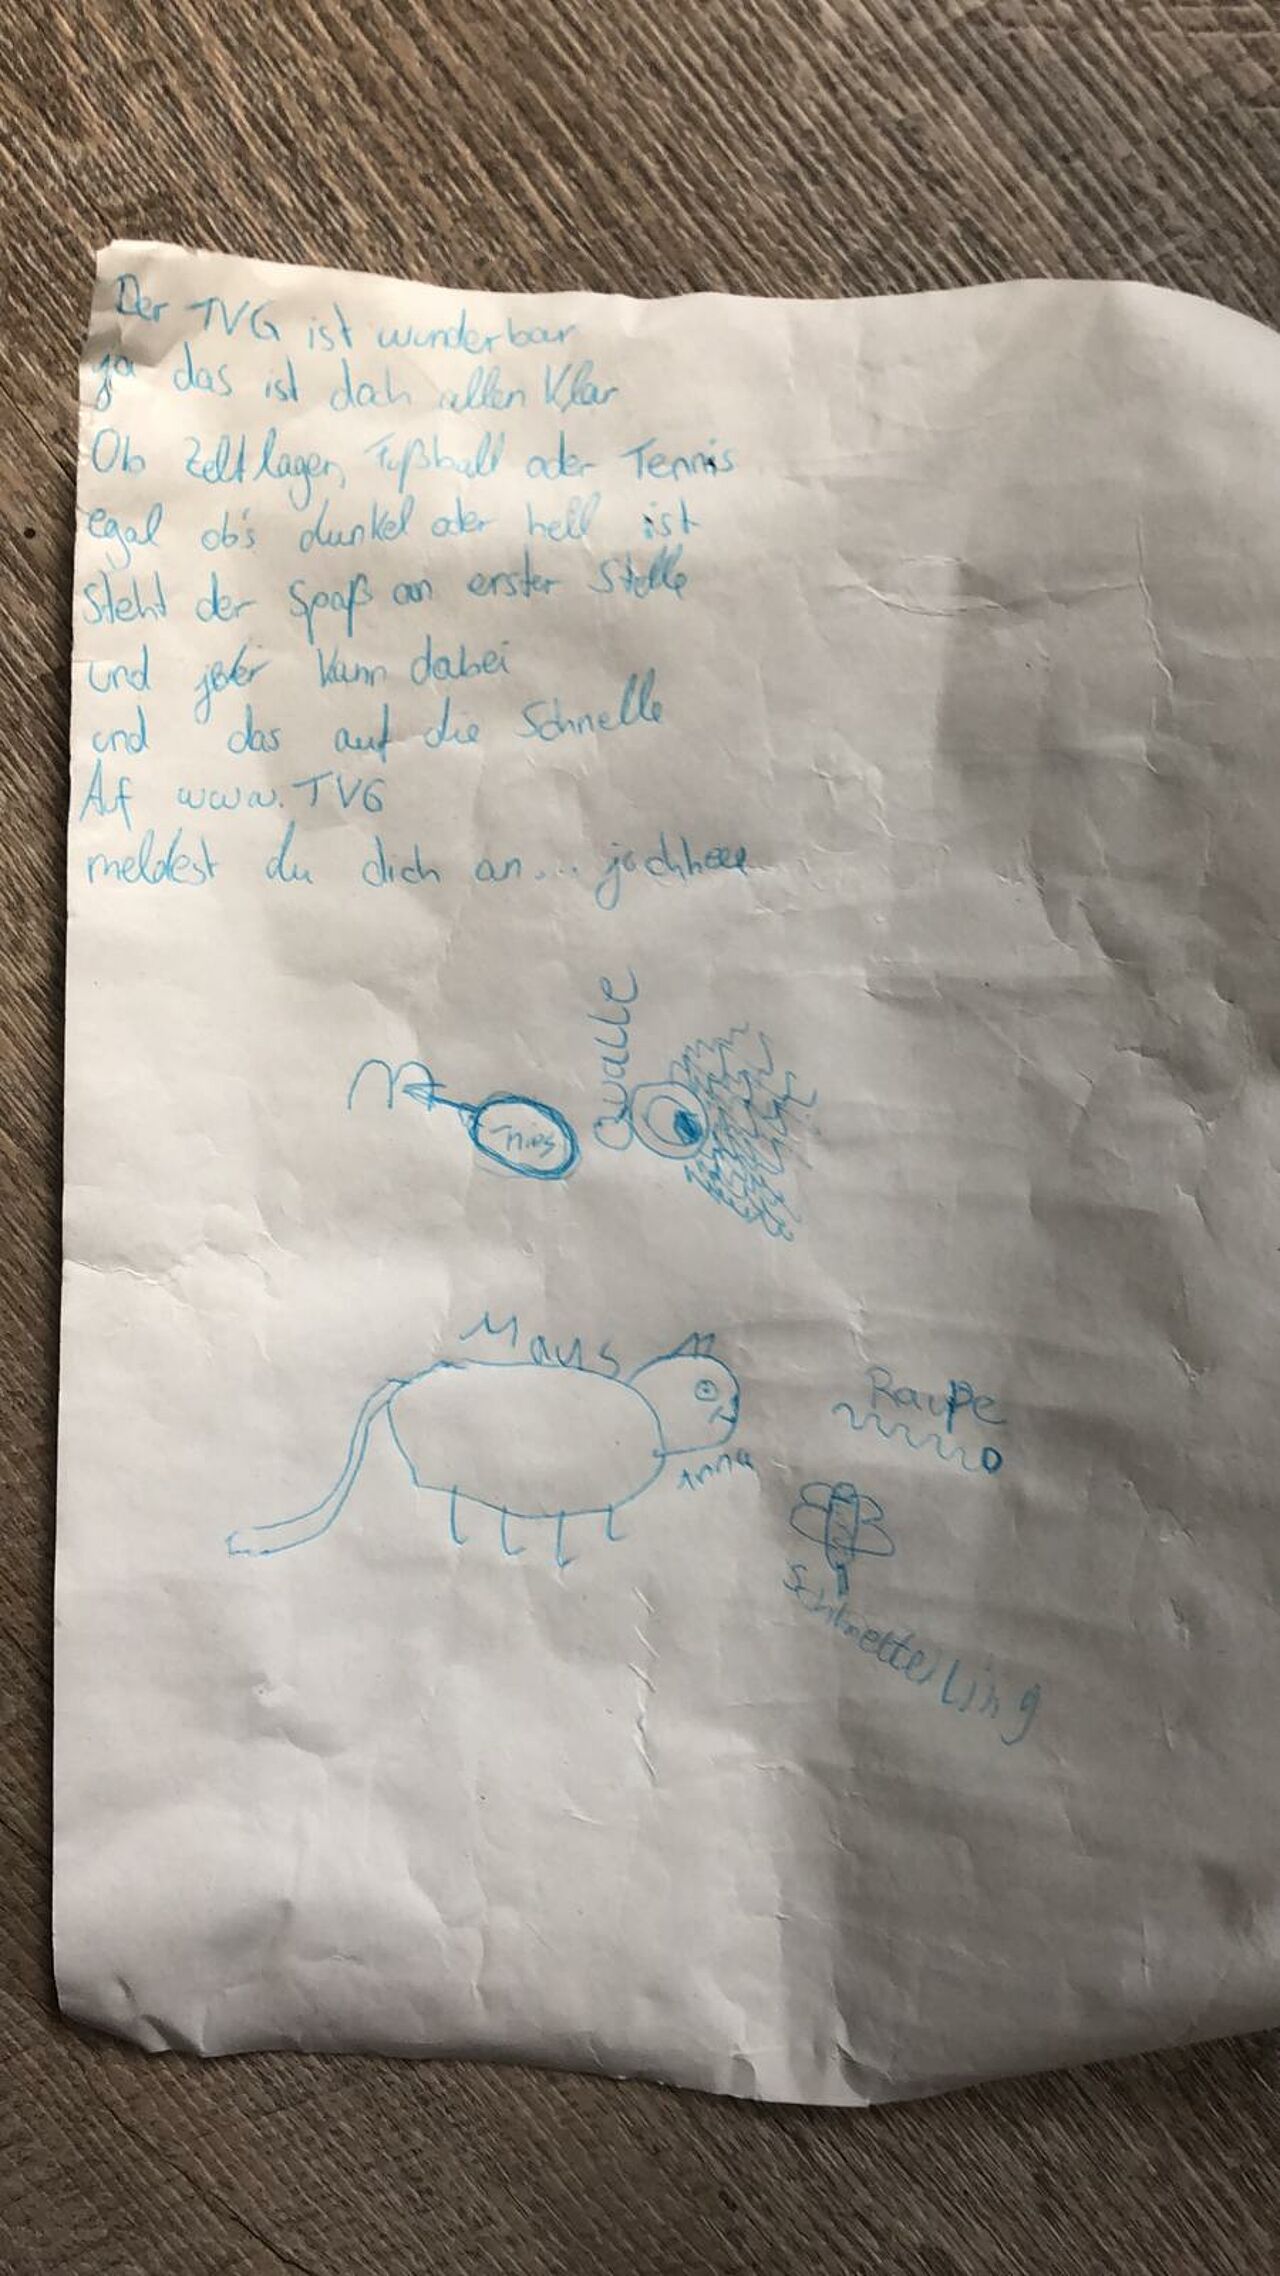 Der TVG ist wunderbar
ja das ist doch allen Klar
Ob Zeltlager, Fußball oder Tennis
egal ob's dunkel oder hell ist
steht der Spaß an erster Stelle
und jeder kann dabei
und das auf die Schnelle
Auf www.TVG
meldest du dich an... juchhee
Qualle
Maus
Anna
Raupe
Schmetterling